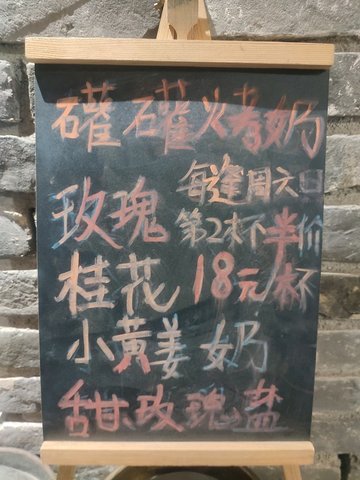 礶礶烤奶
每逢周六日
玫瑰 第2杯半价
桂花 18元/杯
小黄姜奶
甜玫瑰